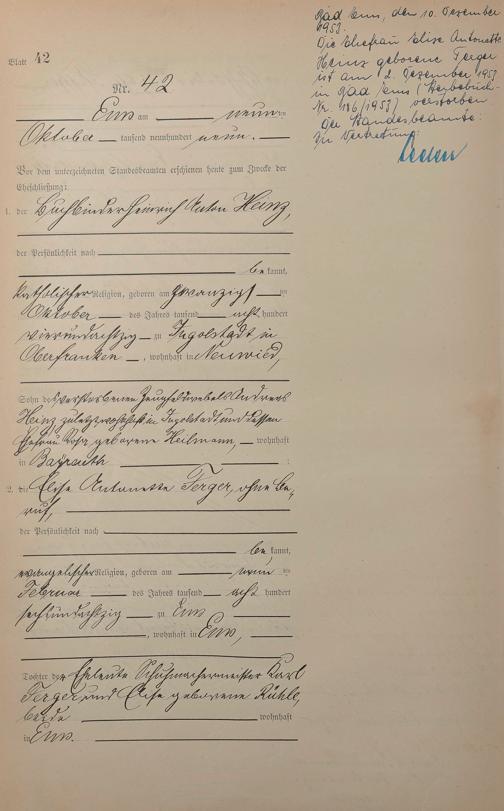 Bad Ems, den 10. Dezember
1953.
Die Ehefrau Elise Antonette
Heinz geborene Ferger
ist am 2. Dezember 1953
in Bad Ems (Sterbebuch-
Nr. 186/1953) verstorben
Der Standesbeamte:
In Vertretung:
Blatt 42
Nr. 42
Ems am neunten
Oktober tausend neunhundert neun.
Vor dem unterzeichneten Standesbeamten erschienen heute zum Zwecke der
Eheschließung:
1. der Buchbinder Heinrich Anton Heinz,
der Persönlichkeit nach
bekannt,
katholischer Religion, geboren am zwanzigsten
Oktober des Jahres tausend acht hundert
vierundachtzig zu Ingolstadt, in
Oberfranken, wohnhaft in Neuwied,
Sohn des verstorbenen Zeugfeldwebels Andreas
Heinz zuletzt wohnhaft in Ingolstadt und dessen
Ehefrau geborene Heilmann, wohnhaft
in Bayreuth :
2. die Elise Antonette Ferger, ohne Be-
ruf,
der Persönlichkeit nach
bekannt,
evangelischer Religion, geboren am neun ten
Februar des Jahres tausend acht hundert
sechsundachtzig zu Ems
, wohnhaft in Ems,
Tochter der Eheleute Schuhmachermeister Karl
Ferger und Elise geborene Rühl,
beide wohnhaft
in Ems.